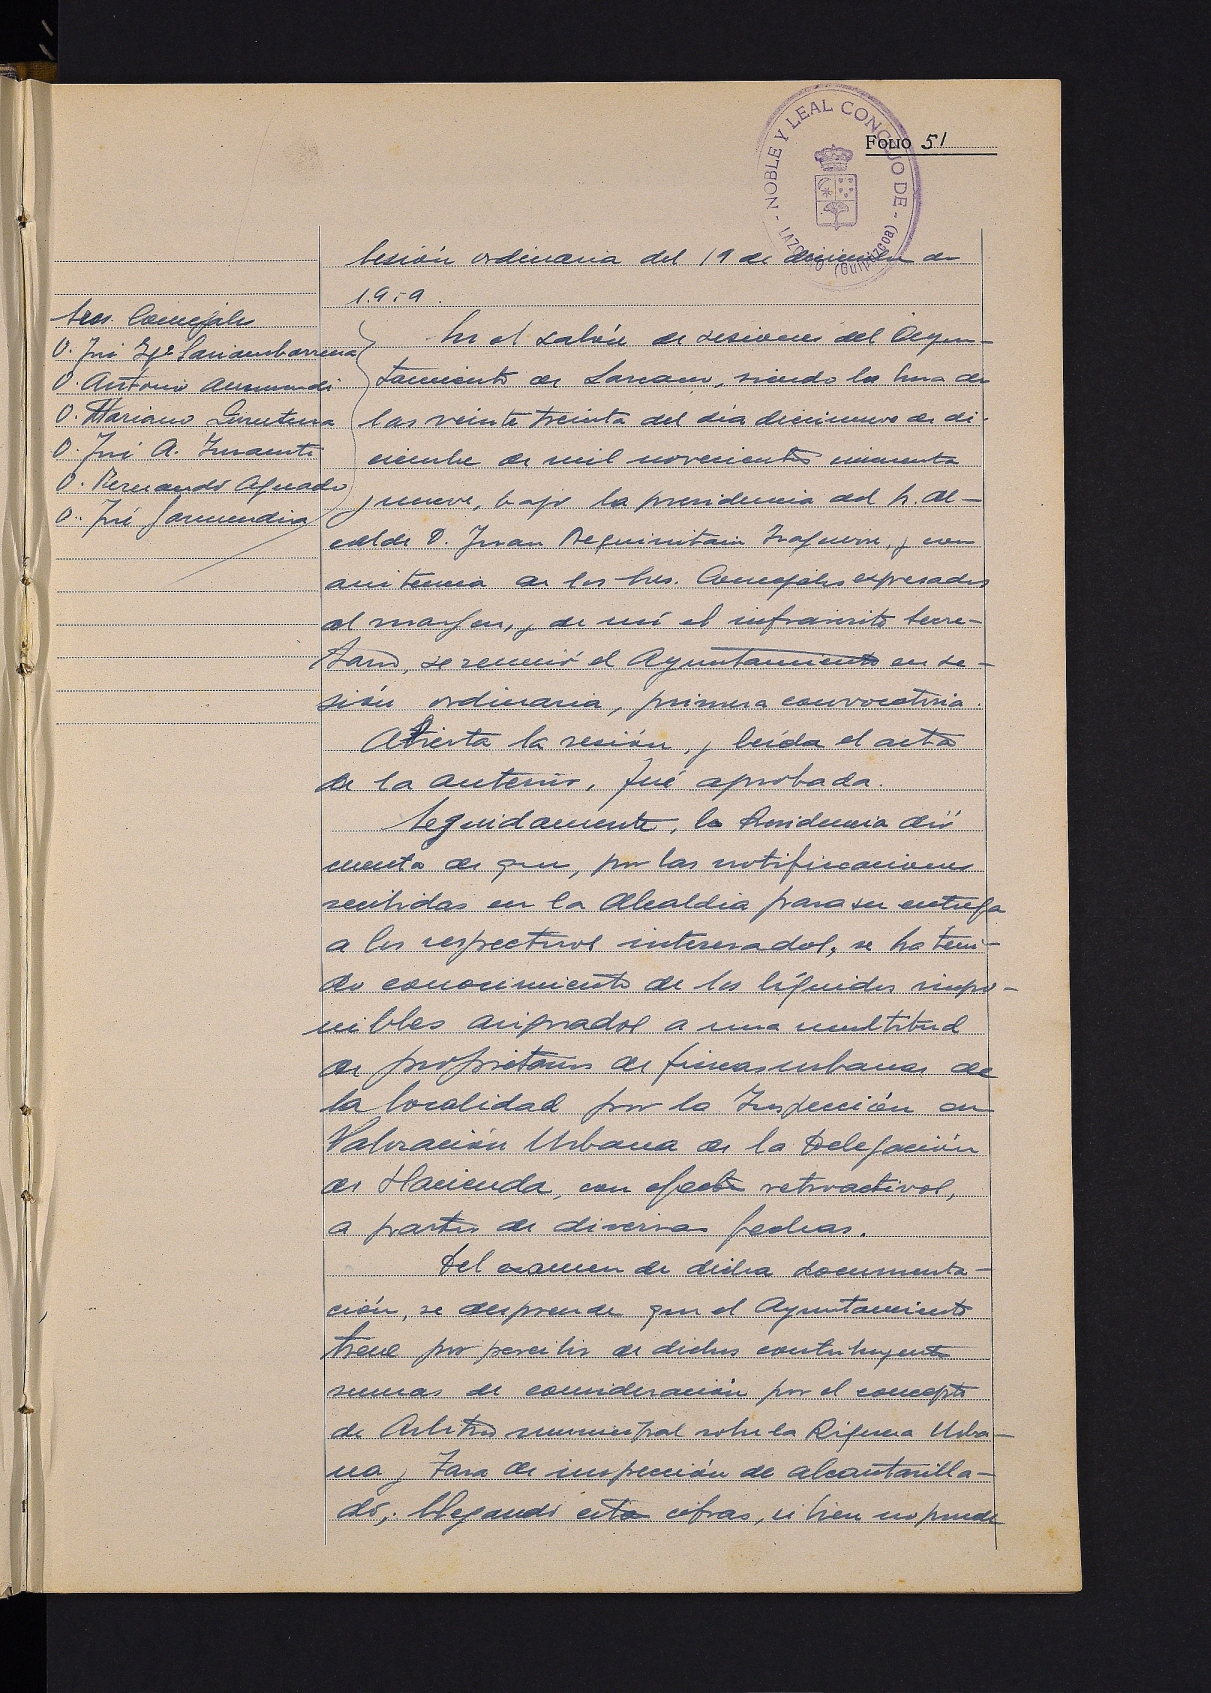 NOBLE Y LEAL CONCEJO DE - LAZCANO (Guipúzcoa) -
FOLIO 51
Sesión ordinaria del 19 de diciembre de
1.959.
Sres. Concejales
D. José Igº
D. Antonio
D. Mariano
D. José A. Insausti
D. Fernando Aguado
D. José Garmendia
En el salón de sesiones del Ayun-
tamiento de Lazcano, siendo la hora de
las veinte treinta del día diecinueve de di-
ciembre de mil novecientos cincuenta
y nueve, bajo la presidencia del Sr. Al-
calde D. Juan Beguiristain, y con
asistencia de los Sres. Concejales expresados
al margen, y de mí el infrascrito Secre-
tario, se reunió el Ayuntamiento en se-
sión ordinaria, primera convocatoria.
Abierta la sesión, y leída el acta
de la anterior, fué aprobada.
Seguidamente, la Presidencia dió
cuenta de que, por las notificaciones
recibidas en la Alcaldía para su entrega
a los respectivos interesados, se ha teni-
do conocimiento de los líquidos impo-
nibles asignados a una multitud
de propietarios de fincas urbanas de
la localidad por la Inspección de
Valoración Urbana de la Delegación
de Hacienda, con efectos retroactivos,
a partir de diversas fechas.
Del examen de dicha documenta-
ción, se desprende que el Ayuntamiento
tiene por percibir de dichos contribuyentes
sumas de consideración por el concepto
de Arbitrio municipal sobre la Riqueza Urba-
na y Tasa de inspección de alcantarilla-
do; llegando esta cifras, si bien no puede